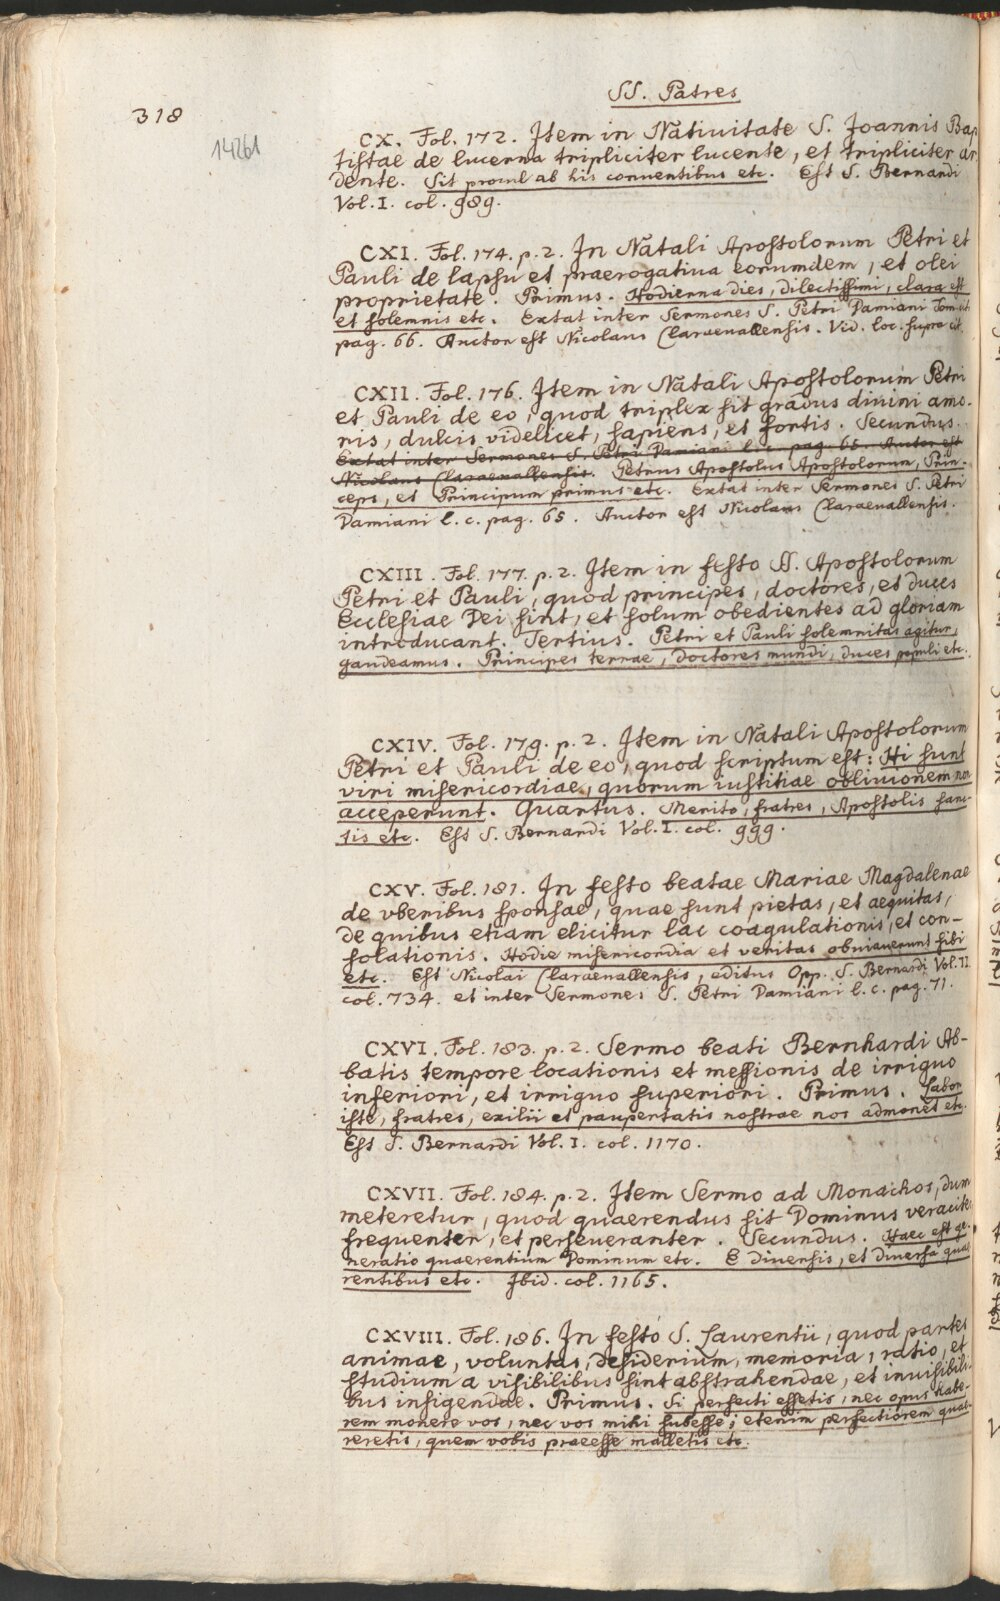 SS. Patres
318
14261
CX. Fol. 172. Item in Natiuitate S. Joannis Bap
tistae de lucerna tripliciter lucente, et tripliciter ar
dente. Sit procul ab his conuentibus etc. Est S. Bernardi
Vol. I. col. 989.
CXI. Fol. 174. p. 2. In Natali Apostolorum Petri et
Pauli de lapsu et praerogatiua eorumdem, et olei
proprietate. Primus. Hodierna dies, dilectissimi, clara est
et solemnis etc. Extat inter Sermones S. Petri Damiani Tom. cit.
pag. 66. Auctor est Nicolaus Claraevallensis. Vid. loc. supra cit.
CXII. Fol. 176. Item in Natali Apostolorum Petri
et Pauli de eo, quod triplex sit gradus diuini amo-
ris, dulcis videlicet, sapiens, et fortis. Secundus.
Extat inter Sermones S. Petri Damiani l. c. pag. 65. Auctor est
Nicolaus Claraeuallensis. Petrus Apostolus Apostolorum, Prin-
ceps, et Principum primus etc. Extat inter Sermones S. Petri
Damiani l. c. pag. 65. Auctor est Nicolaus Claraeuallensis.
CXIII. Fol. 177. p. 2. Item in festo SS. Apostolorum
Petri et Pauli, quod principes, doctores, et duces
Ecclesiae Dei sint, et solum obedientes ad gloriam
introducant. Tertius. Petri et Pauli solemnitas agitur,
gaudeamus. Principes terrae, doctores mundi, duces populi etc.
CXIV. Fol. 179. p. 2. Item in Natali Apostolorum
Petri et Pauli de eo, quod scriptum est: Hi sunt
viri misericordiae, quorum iustitiae obliuionem non
acceperunt. Quartus. Merito, fratres, Apostolis sanc-
tis etc. Est S. Bernardi Vol. I. col. 999.
CXV. Fol. 181. In festo beatae Mariae Magdalenae
de vberibus sponsae, quae sunt pietas, et aequitas,
de quibus etiam elicitur lac coagulationis, et con-
solationis. Hodie misericordia et veritas obuiauerunt sibi
etc. Est Nicolai Claraeuallensis, editus Opp. S. Bernardi Vol. II
col. 734. et inter Sermones S. Petri Damiani l. c. pag. 71.
CXVI. Fol. 183. p. 2. Sermo beati Bernhardi Ab-
batis tempore locationis et messionis de irriguo
inferiori, et irriguo superiori. Primus. Labor
iste, fratres, exilii et paupertatis nostrae nos admonet etc.
Est S. Bernardi Vol. I. col. 1170.
CXVII. Fol. 184. p. 2. Item Sermo ad Monachos, dum
meteretur, quod quaerendus sit Dominus veraciter
frequenter, et perseueranter. Secundus. Haec est ge-
neratio quaerentium Dominum etc. E diuersis, et diuersa quae
rentibus etc. Ibid. col. 1165.
CXVIII. Fol. 186. In festo S. Laurentii, quod partes
animae, voluntas, desiderium, memoria, ratio, et
studium a visibilibus sint abstrahendae, et inuisibili-
bus insigendae. Primus. Si perfecti essetis, nec opus habe-
rem monere vos, nec vos mihi subesse; etenim perfectiorem quae-
reretis, quem vobis praeesse malletis etc.